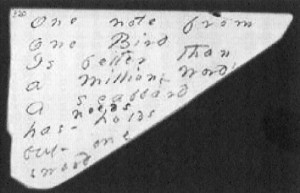 320
One note from
One Bird
Is better than
a million words
A scabbard
has - holds
needs
but one
sword